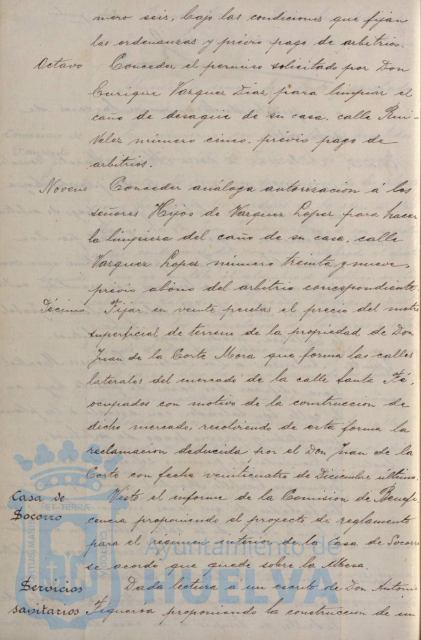 mero seis, bajo las condiciones que fijan
las ordenanzas y previo pago de arbitrios.
Octavo Conceder el permiso solicitado por Don
Enrique Vazquez Diaz para limpiar el
caño de desagüe de su casa, calle Rui-
Velez número cinco, previo pago de
arbitrios.
Noveno Conceder análoga autorización á los
señores Hijos de Vazquez Lopez para hacer
la limpieza del caño de su casa, calle
Vazquez Lopez número treinta y nueve,
previo abono del arbitrio correspondiente.
Décimo Fijar en veinte pesetas el precio del metro
superficial de terreno de la propiedad de Don
Juan de la Corte Mora que forma las calles
laterales del mercado de la calle Santa Fé,
ocupados con motivo de la construccion de
dicho mercado, resolviendo de esta forma la
reclamacion deducida por el Don Juan de la
Corte con fecha veinticuatro de Diciembre último.
Casa de Socorro Visto el informe de la Comision de Benefi-
cencia proponiendo el proyecto de reglamento
para el regimen interior de la Casa de Socorro
se acordó que quede sobre la Mesa.
Servicios sanitarios. Dada lectura á un escrito de Don Antonio
Figueroa proponiendo la construccion de un
Ayuntamiento de
HUELVA